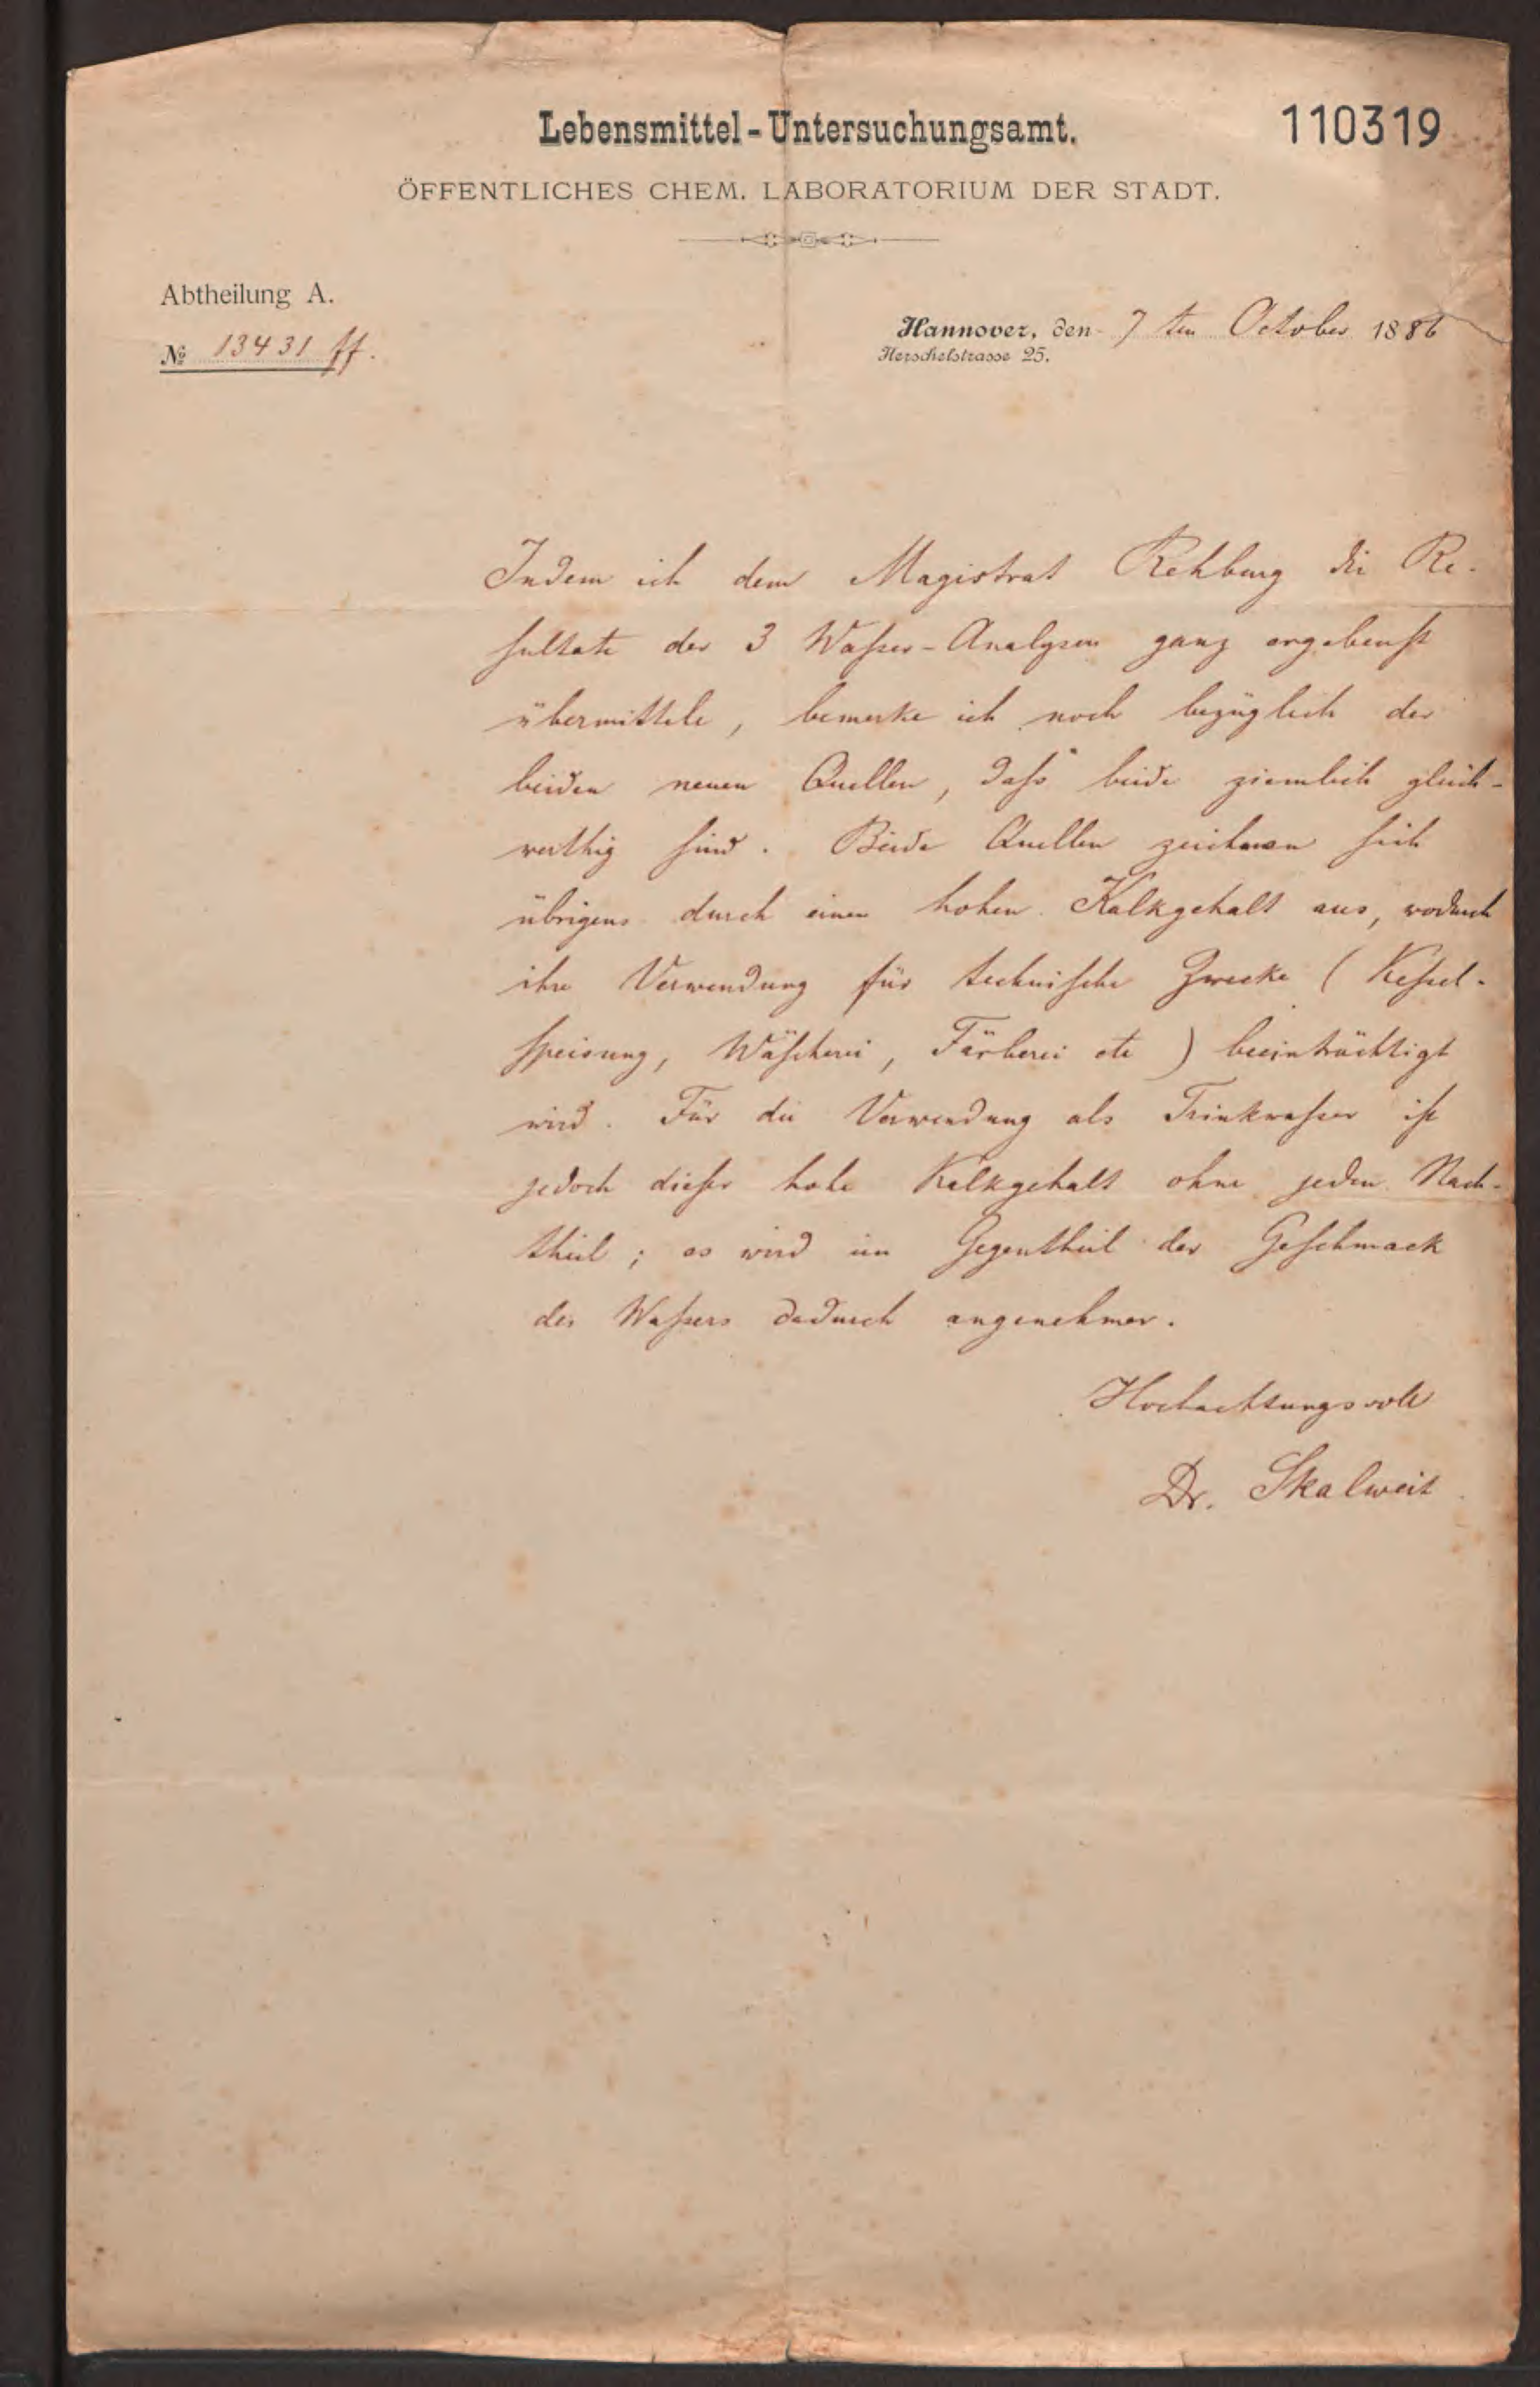 Lebensmittel-Untersuchungsamt.
110319
ÖFFENTLICHES CHEM. LABORATORIUM DER STADT.
Abtheilung A.
№ 13431 ff.
Hannover, den 7 ten October 1886
Herschelstrasse 25.
Indem ich dem Magistrat Rehburg die Re-
sultate der 3 Wasser-Analysen ganz ergebenst
übermittele, bemerke ich noch bezüglich der
beiden neuen Quellen, dass beide ziemlich gleich-
werthig sind. Beide Quellen zeichnen sich
übrigens durch einen hohen Kalkgehalt aus, wodurch
ihre Verwendung für technische Zwecke (Kessel-
speisung, Wäscherei, Färberei etc) beeinträchtigt
wird. Für die Verwendung als Trinkwasser ist
jedoch dieser hohe Kalkgehalt ohne jeden Nach-
theil; es wird im Gegentheil der Geschmack
des Wassers dadurch angenehmer.
Hochachtungsvoll
Dr. Skalweit